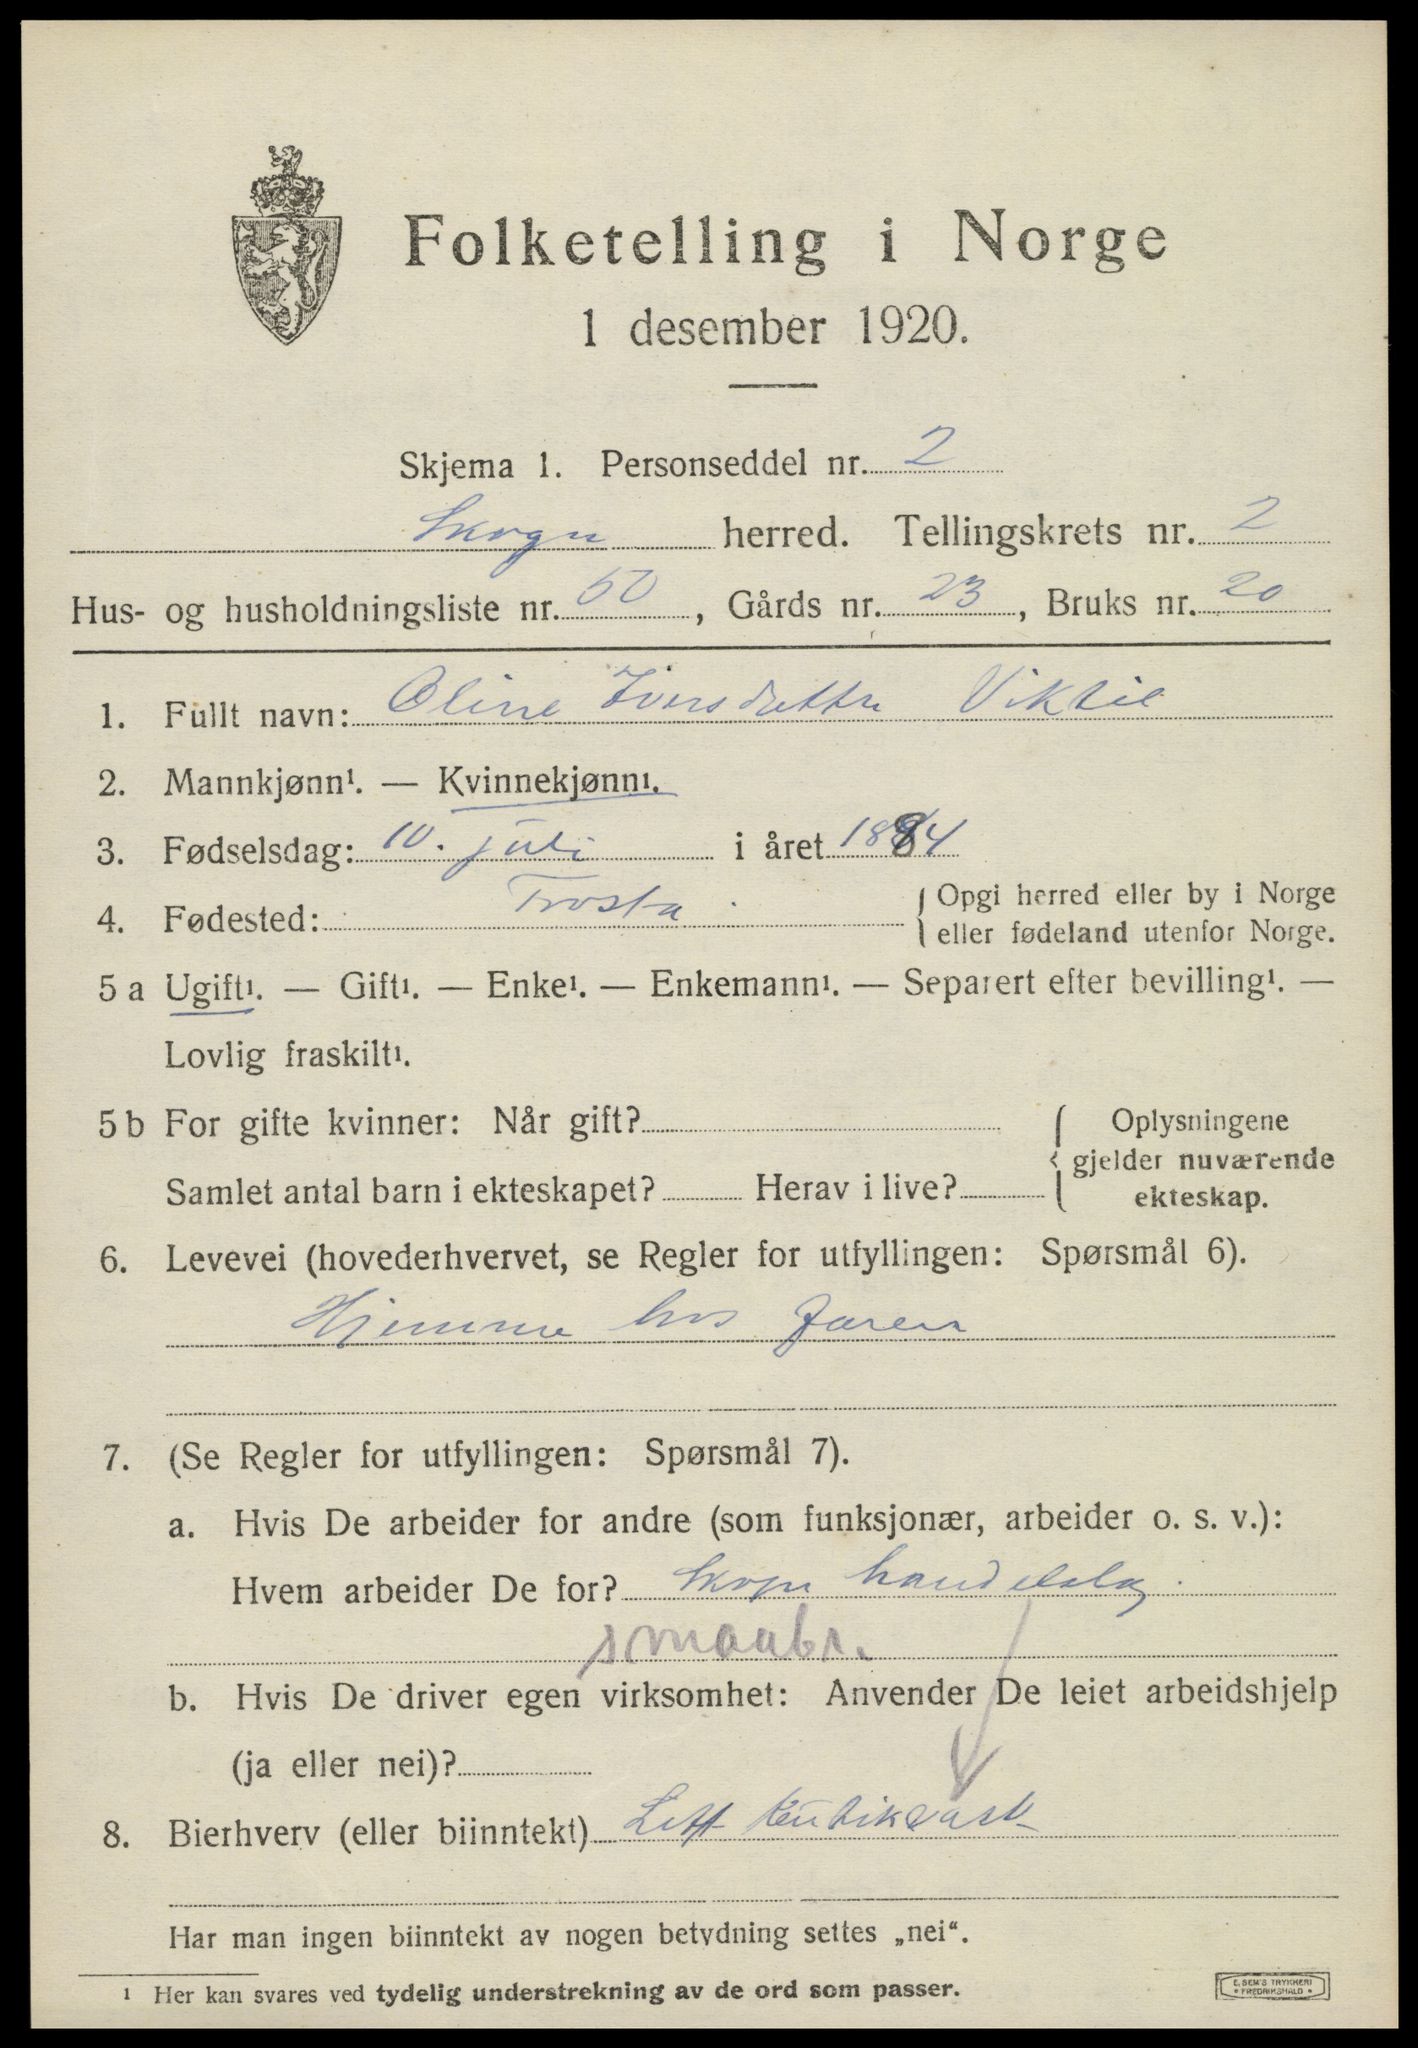 Folketelling i Norge
1 desember 1920.
Skjema 1. Personseddel nr. 2
Skogn herred. Tellingskrets nr. 2
Hus- og husholdningsliste nr. 50, Gårds nr. 23, Bruks nr. 20
1. Fullt navn: Oline Iversdatter Viktil
2. Mannkjønn¹. — Kvinnekjønn¹.
3. Fødselsdag: 10. juli i året 1884
4. Fødested: Frosta. Opgi herred eller by i Norge
eller fødeland utenfor Norge.
5 a Ugift¹. — Gift¹. — Enke¹. — Enkemann¹. — Separert efter bevilling¹. —
Lovlig fraskilt¹.
5 b For gifte kvinner: Når gift? Oplysningene
gjelder nuværende
Samlet antal barn i ekteskapet? Herav i live? ekteskap.
6. Levevei (hovederhvervet, se Regler for utfyllingen: Spørsmål 6).
Hjemme hos faren
7. (Se Regler for utfyllingen: Spørsmål 7).
a. Hvis De arbeider for andre (som funksjonær, arbeider o. s. v.):
Hvem arbeider De for? Skogn handelslag.
smaabr.
b. Hvis De driver egen virksomhet: Anvender De leiet arbeidshjelp
(ja eller nei)?
8. Bierhverv (eller biinntekt) Litt butikvask
Har man ingen biinntekt av nogen betydning settes „nei“.
¹ Her kan svares ved tydelig understrekning av de ord som passer.
E. SEM'S TRYKKERI
• FREDRIKSHALD •